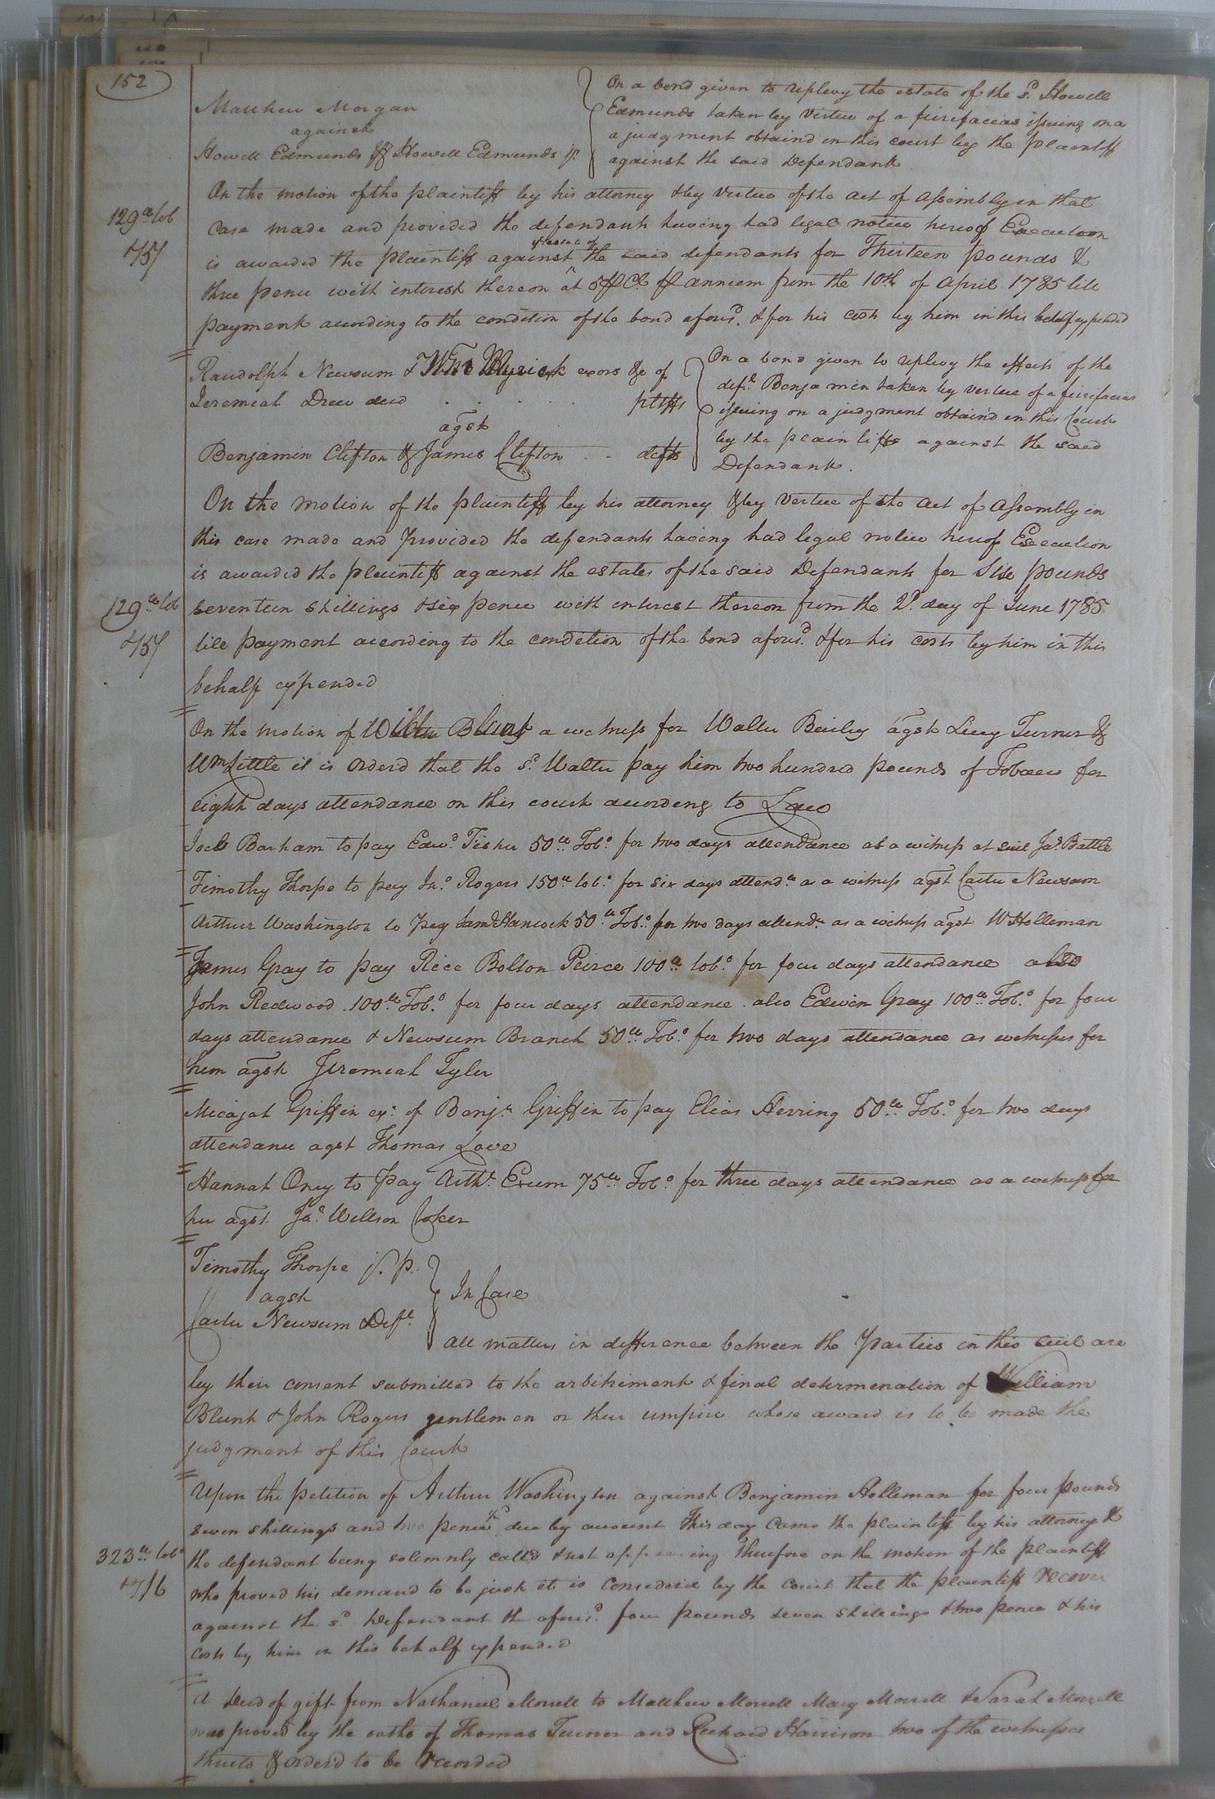 152
Matthew Morgan
against
Howell Edmunds & Howell Edmunds jr
On a bond given to replevy the estate of the sd. Howell
Edmunds taken by virtue of a fierifacias issuing on a
a judgment obtaind in this court by the plaintiff
against the said Defendant
On the motion of the plaintiff by his attorney & by virtue of the act of assembly in that
case made and provided the defendants having had legal notice hereof Execution
is awarded the plaintiff against the said defendants for Thirteen pounds &
three pence with interest thereon at 5 annum from the 10th of April 1785 till
payment according to the condition of the bond aforesd. & for his costs by him in this behalf expended
129 tob
Randolph Newsum & Wm Myrick exors &c of
Jeremiah Drew decd ptiffs
agst
Benjamin Clifton & James Clifton defts
On a bond given to replevy the effects of the
deft. Benjamin taken by vertue of a fierifacias
issuing on a judgment obtaind in this Court
by the plaintiffs against the said
Defendant.
On the motion of the plaintiff by his attorney & by vertue of the act of assembly in
this case made and provided the defendants having had legal notice hereof Execution
is awarded the plaintiff against the estates of the said Defendants for pounds
seventeen shillings & six pence with interest thereon from the 2d. day of June 1785
till payment according to the condition of the bond aforesd. & for his costs by him in this
behalf expended
129 tob
On the motion of Blunt a witness for Walter Bailey agst Lucy Turner &
Wm Little it is Orderd that the sd. Walter pay him two hundred pounds of Tobacco for
eight days attendance on this court according to Law
Barham to pay Edwd. Fisher 50 Tobo. for two days attendance as a witness at suit Jas. Battle
Timothy Thorpe to pay Jno. Rogers 150 tobo. for six days attendce as a witness agst Carter Newsum
Arthur Washington to pay Saml Hancock 50 Tobo. for two days attendce as a witness agst W Holliman
James Gray to pay Rice Bolton Peirce 100 tobo. for four days attendance also
John Redwood 100 Tobo. for four days attendance also Edwin Gray 100 Tobo. for four
days attendance & Newsum Branch 50 Tobo. for two days attendance as witnesses for
him agst Jeremiah Tyler
Micajah Griffin exr. of Benjn. Griffin to pay Elias Herring 50 Tobo. for two days
attendance agst Thomas Love
Hannah Oney to pay Arthr. Exum 75 Tobo. for three days attendance as a witness for
her agst. Jas. Willson Coker
Timothy Thorpe jr. p.
agst
Carter Newsum Deft.
In Case
All matters in difference between the Parties in this suit are
by their consent submitted to the arbitriment & final determenation of William
Blunt & John Rogers gentlemen or their umpire whose award is to be made the
judgment of this Court
Upon the petition of Arthur Washington against Benjamin Holleman for four pounds
seven shillings and two pence due by account This day came the plaintiff by his attorney &
the defendant being solemnly calld & not appearing Therefore on the motion of the plaintiff
who proved his demand to be just it is Considerd by the court that the plaintiff recover
against the sd. Defendant the aforesd. four pounds seven shillings & two pence & his
costs by him in this behalf expended
323 tobo
A Deed of gift from Nathaniel Morrell to Matthew Morrell Mary Morrell & Sarah Morrell
was proved by the oaths of Thomas Turner and Richard Harrison two of the witnesses
thereto & orderd to be recorded